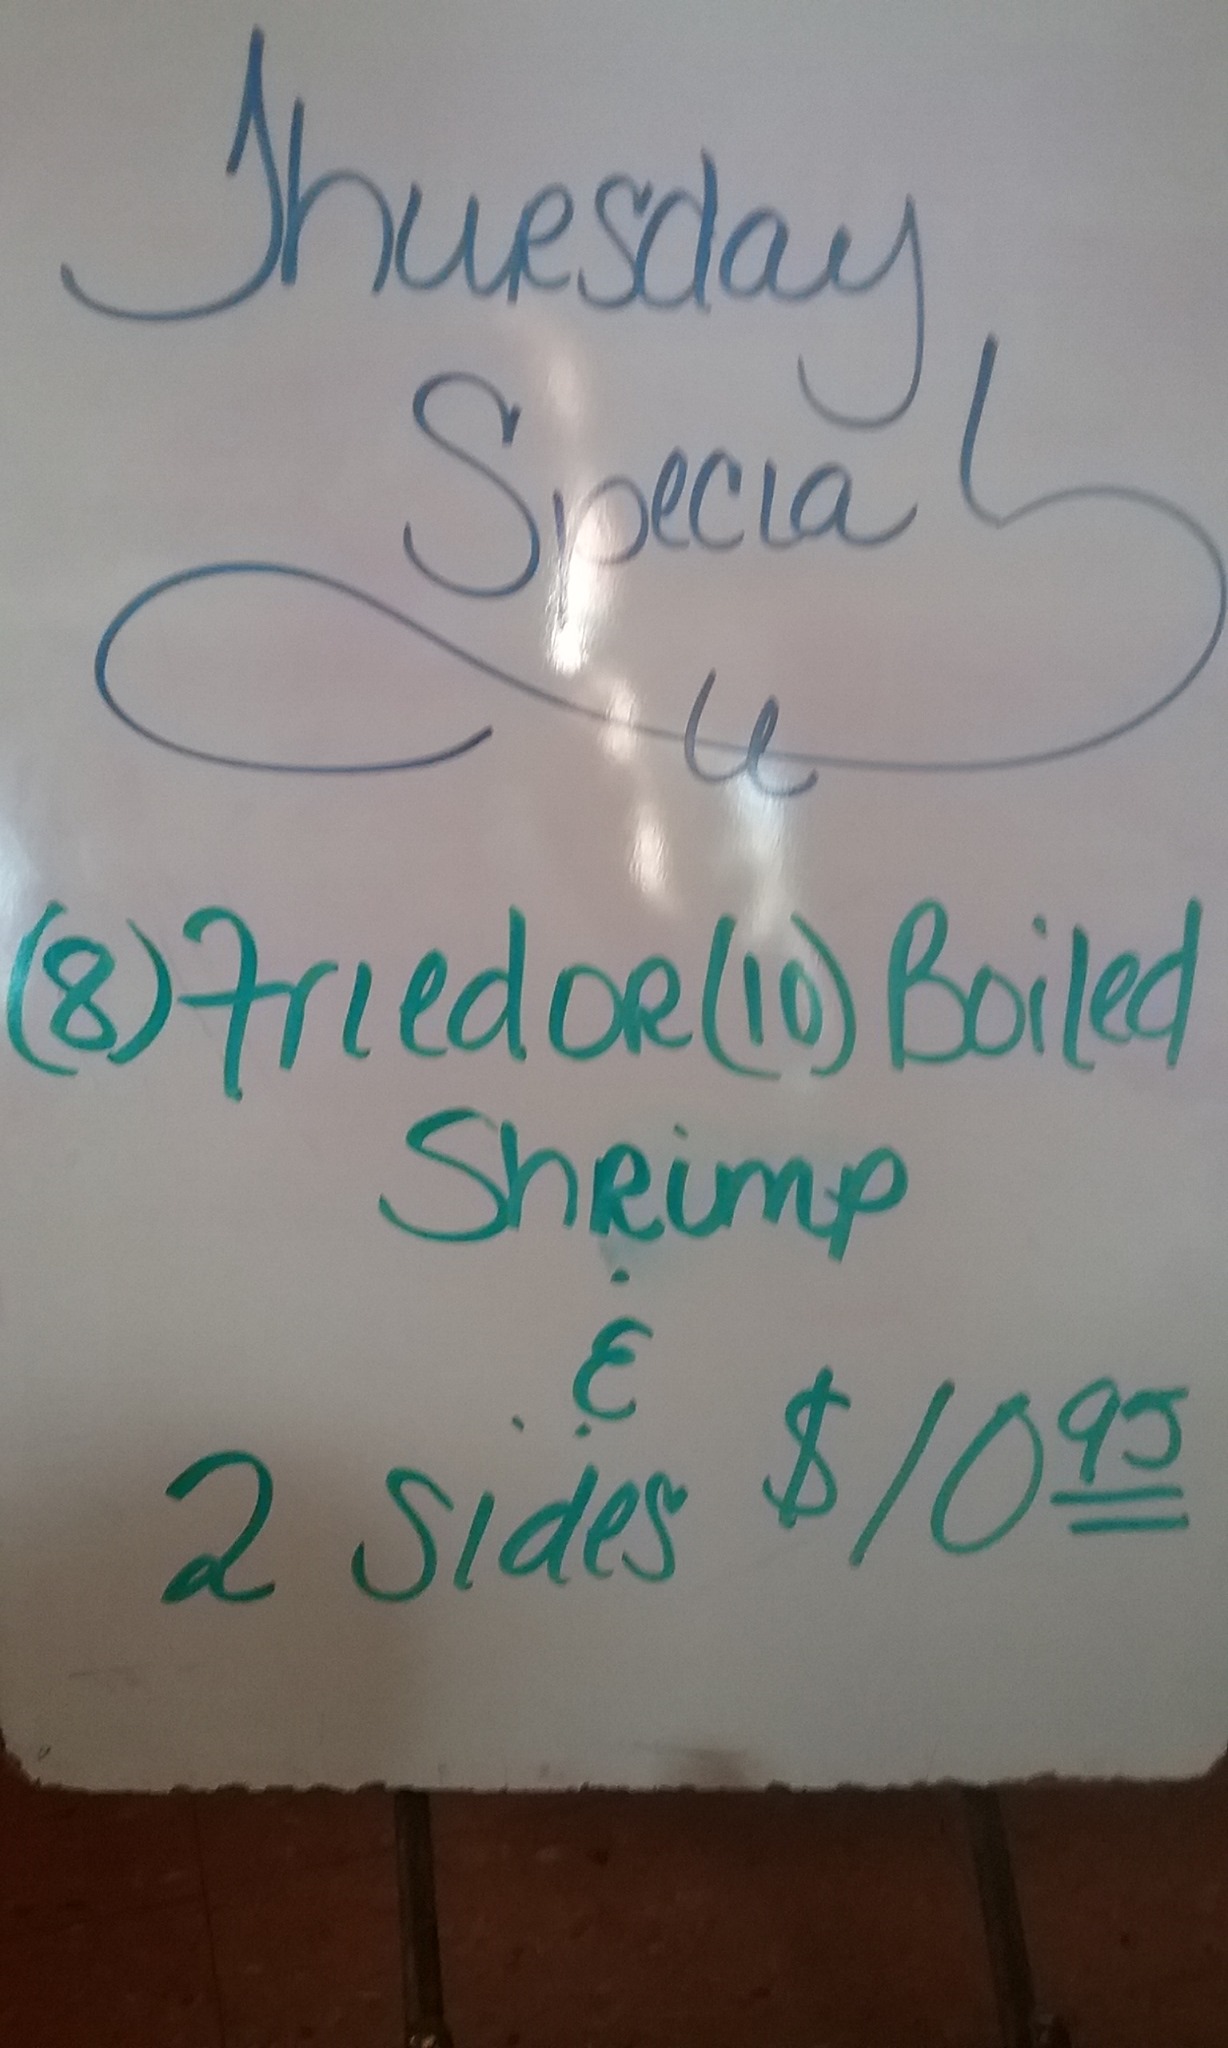 Thursday
Special
(8) Fried OR (10) Boiled
Shrimp
&
2 Sides $10.95